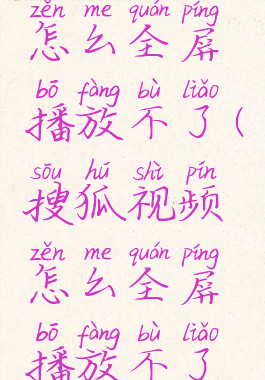 zěn me quán píng
怎么全屏
bō fàng bù liǎo
播放不了(
sōu hú shì pín
搜狐视频
zěn me quán píng
怎么全屏
bō fàng bù liǎo
播放不了